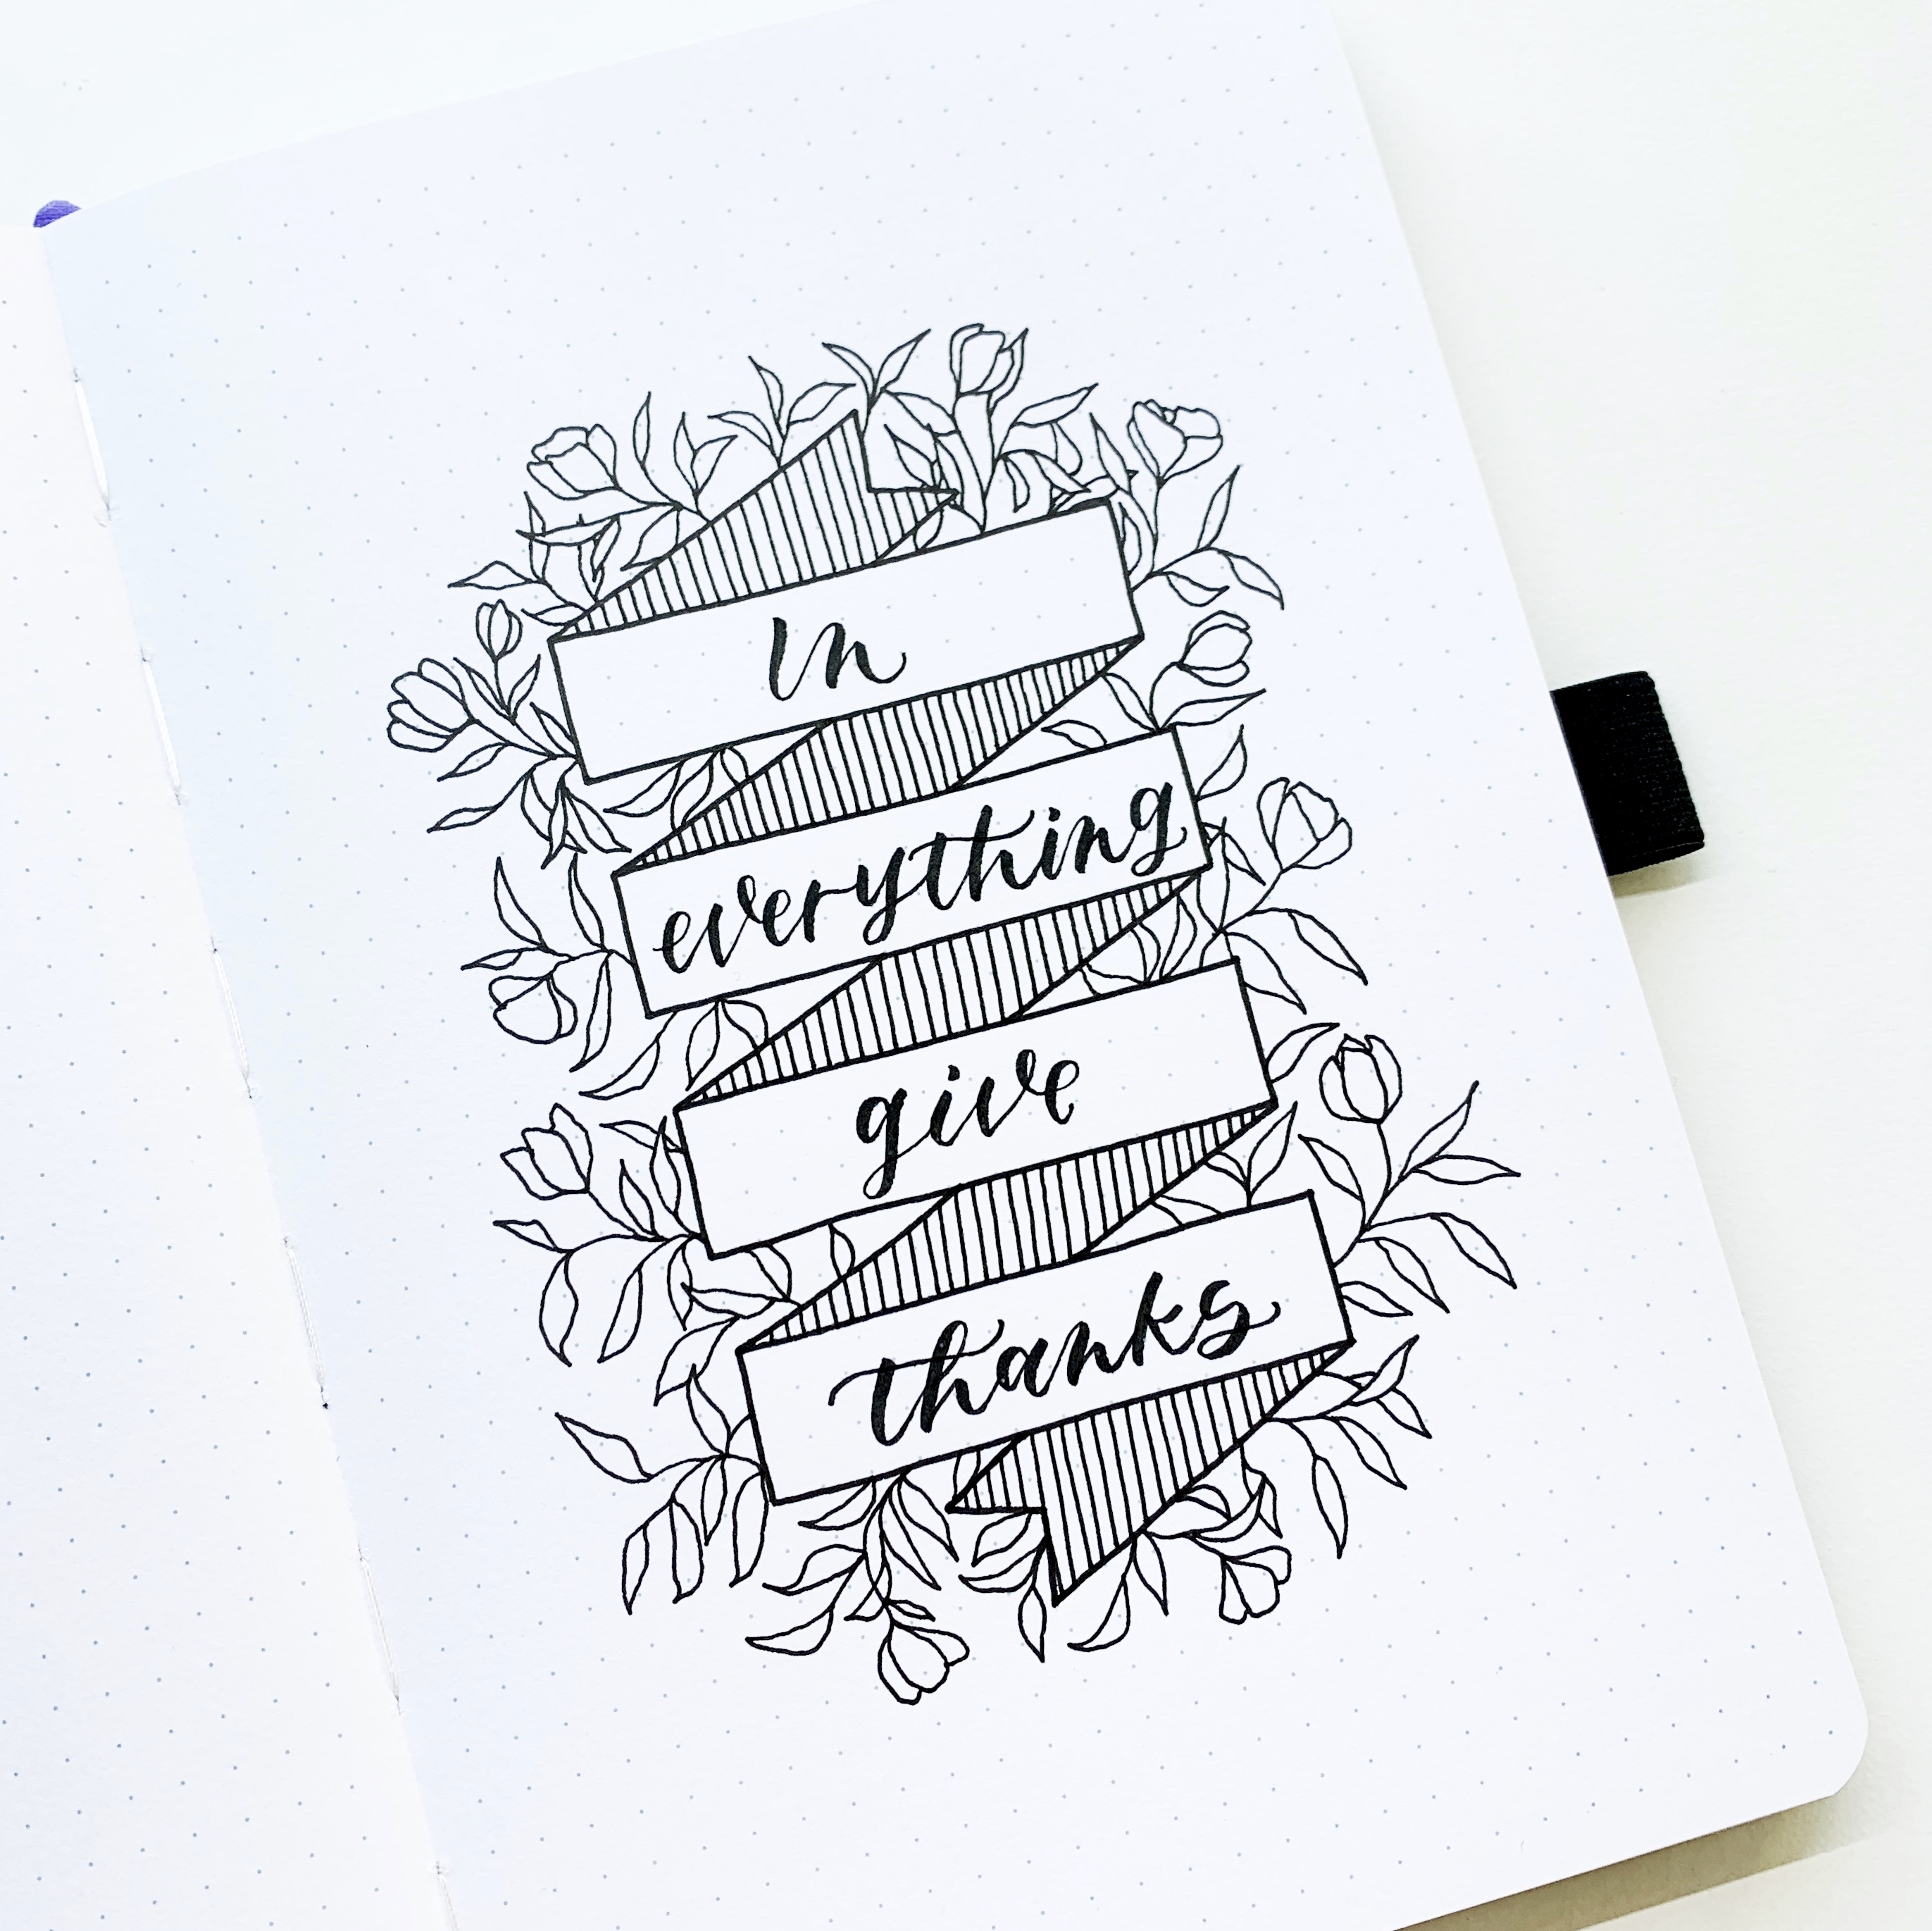 In
everything
give
thanks